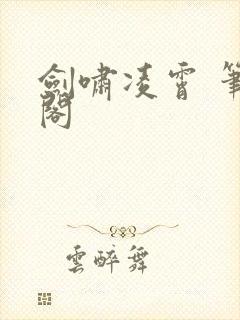 劍嘯凌霄 筆
閣
雲醉舞